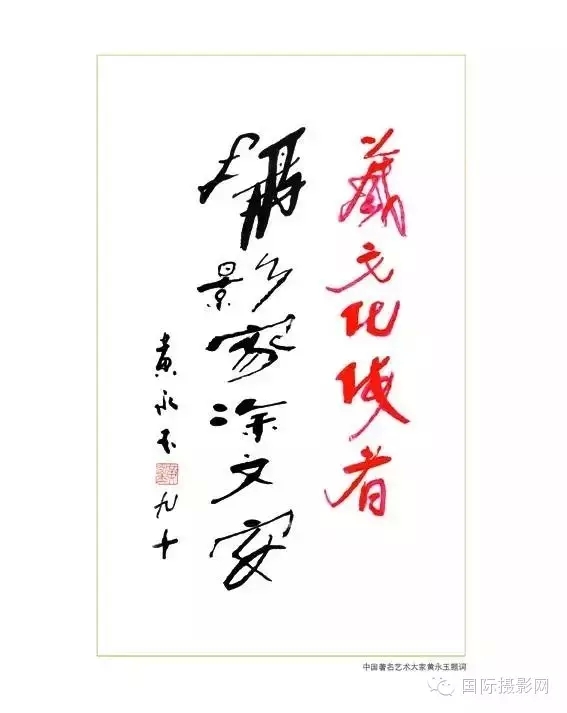 藏文化使者
攝影家凃文安
黄永玉
九十
中国著名艺术大家黄永玉题词
国际摄影网